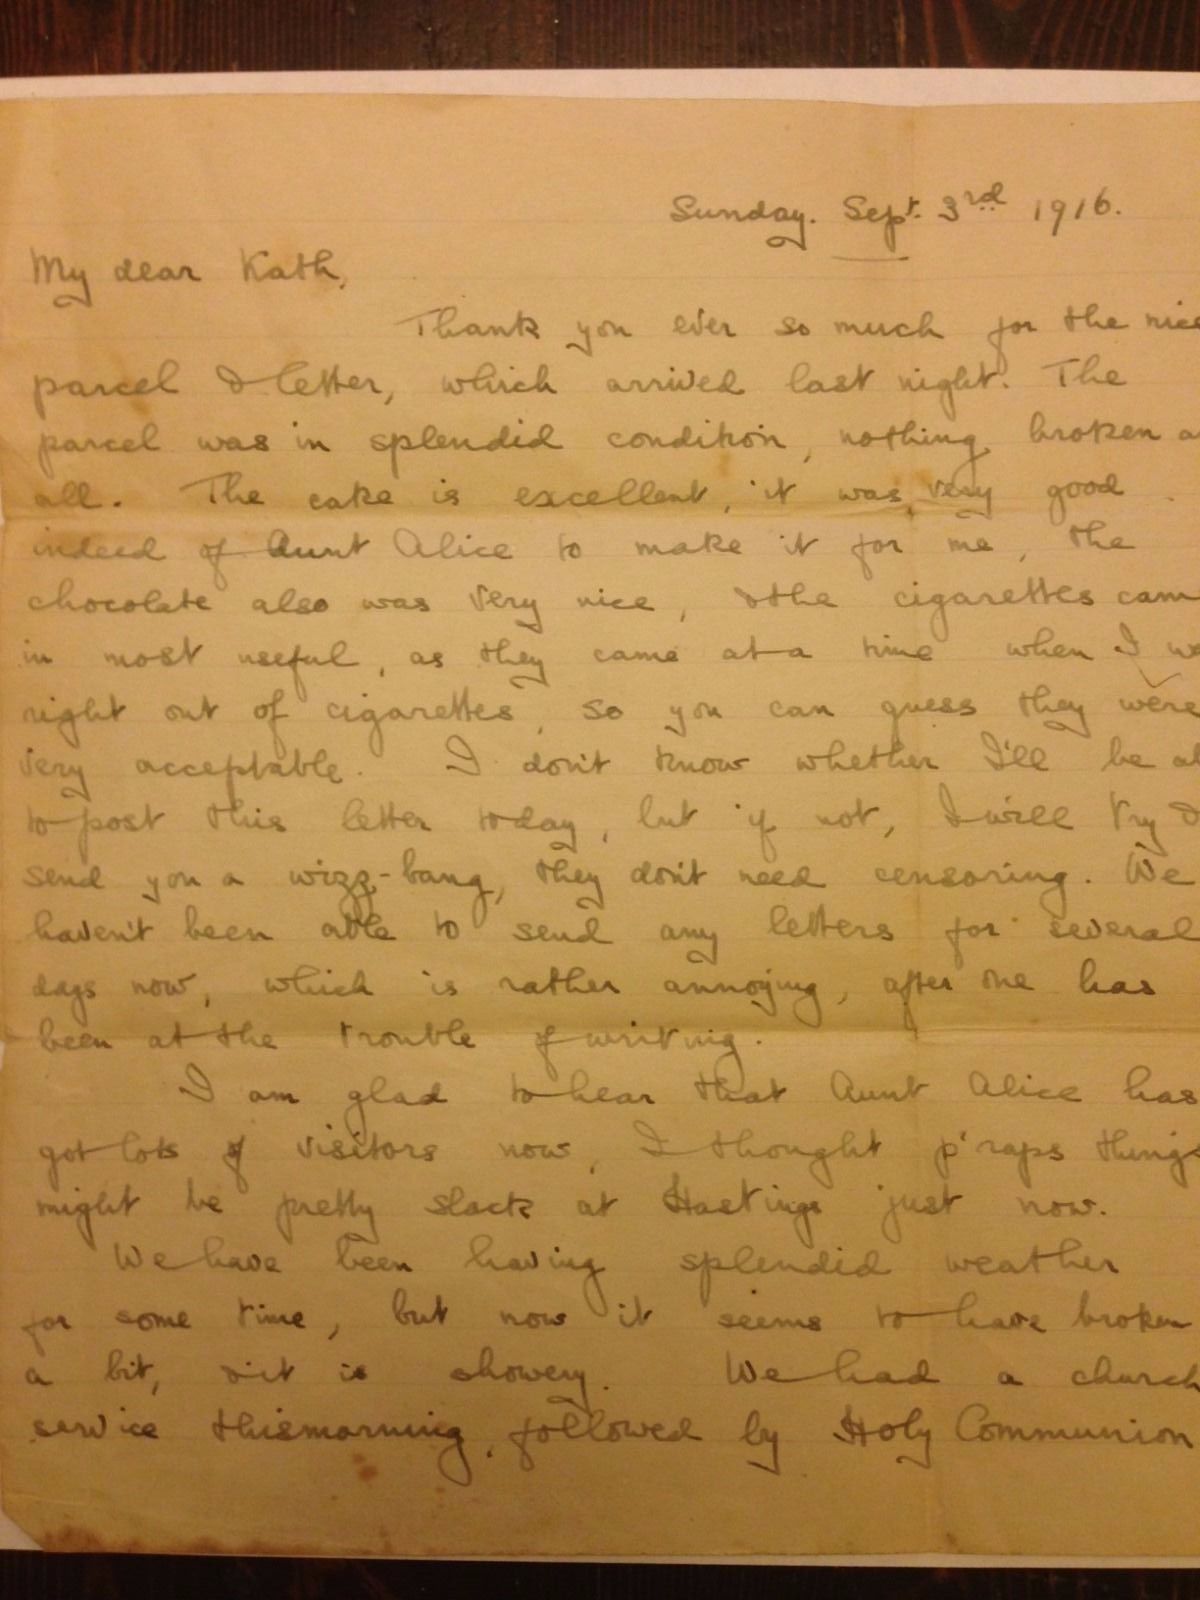 Sunday. Sept. 3rd 1916.
My dear Kath,
Thank you ever so much for the nice
parcel & letter, which arrived last night. The
parcel was in splendid condition, nothing broken a
all. The cake is excellent, it was very good
indeed of Aunt Alice to make it for me, the
chocolate also was very nice, & the cigarettes cam
in most useful, as they came at a time when I we
right out of cigarettes, so you can guess they were
very acceptable. I don't know whether I'll be ab
to post this letter today, but if not, I will try &
send you a wizz-bang, they don't need censoring. We
haven't been able to send any letters for several
days now, which is rather annoying, after one has
been at the trouble of writing.
I am glad to hear that Aunt Alice has
got lots of visitors now, I thought p'raps things
might be pretty slack at Hastings just now.
We have been having splendid weather
for some time, but now it seems to have broken
a bit, & it is showery. We had a church
service this morning, followed by Holy Communion